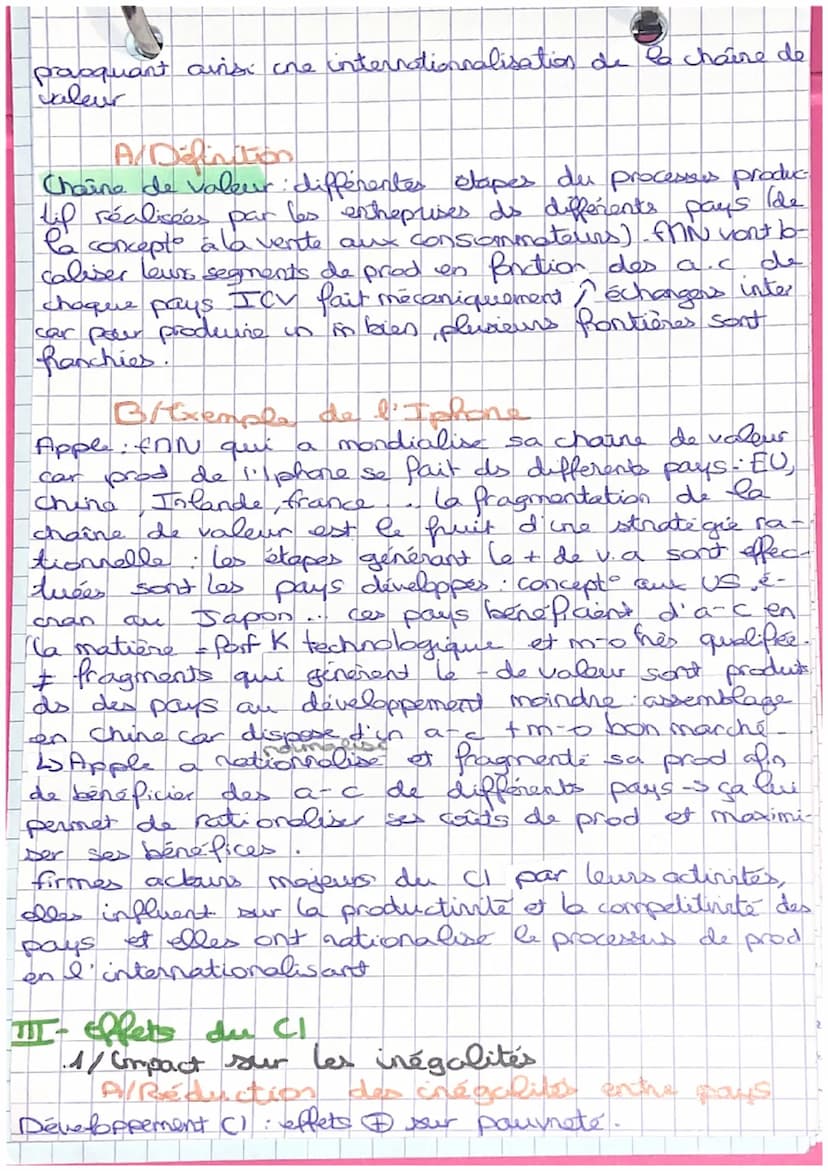 provoquant ainsi une internationnalisation de la chaîne de
valeur
A/Définition
Chaîne de valeur : différentes étapes du processus produc-
tif réalisées par les entreprises ds différents pays (de
la concept° à la vente aux consommateurs). FMN vont lo-
caliser leurs segments de prod en fonction des a.c de
chaque pays ICV fait mécaniquement ↗ échanges inter
car pour produire un m̂ bien, plusieurs frontières sont
franchies.
B/Exemple de l'Iphone
Apple : FMN qui a mondialisé sa chaîne de valeur
car prod de l'Iphone se fait ds différents pays : EU,
Chine, Irlande, france ... La fragmentation de la
chaîne de valeur est le fruit d'une stratégie ra-
tionnelle : les étapes générant le + de v.a sont effec-
tuées sont les pays développés : concept° aux US, é-
cran au Japon ... ces pays bénéficient d'a-c en
la matière = fort K technologique et m-o très qualifiée.
≠ fragments qui génèrent le - de valeur sont produits
ds des pays au développement moindre : assemblage
en Chine car dispose d'un a-c + m-o bon marché.
↳ Apple a rationnalisé et fragmenté sa prod afin
de bénéficier des a-c de différents pays → ça lui
permet de rationaliser ses coûts de prod et maximi-
ser ses bénéfices.
firmes acteurs majeurs du CI par leurs activités,
elles influent sur la productivité et la compétitivité des
pays et elles ont rationalisé le processus de prod
en l'internationalisant
III- Effets du CI
1/ Impact sur les inégalités
A/Réduction des inégalités entre pays
Développement CI : effets ⊕ sur pauvreté.